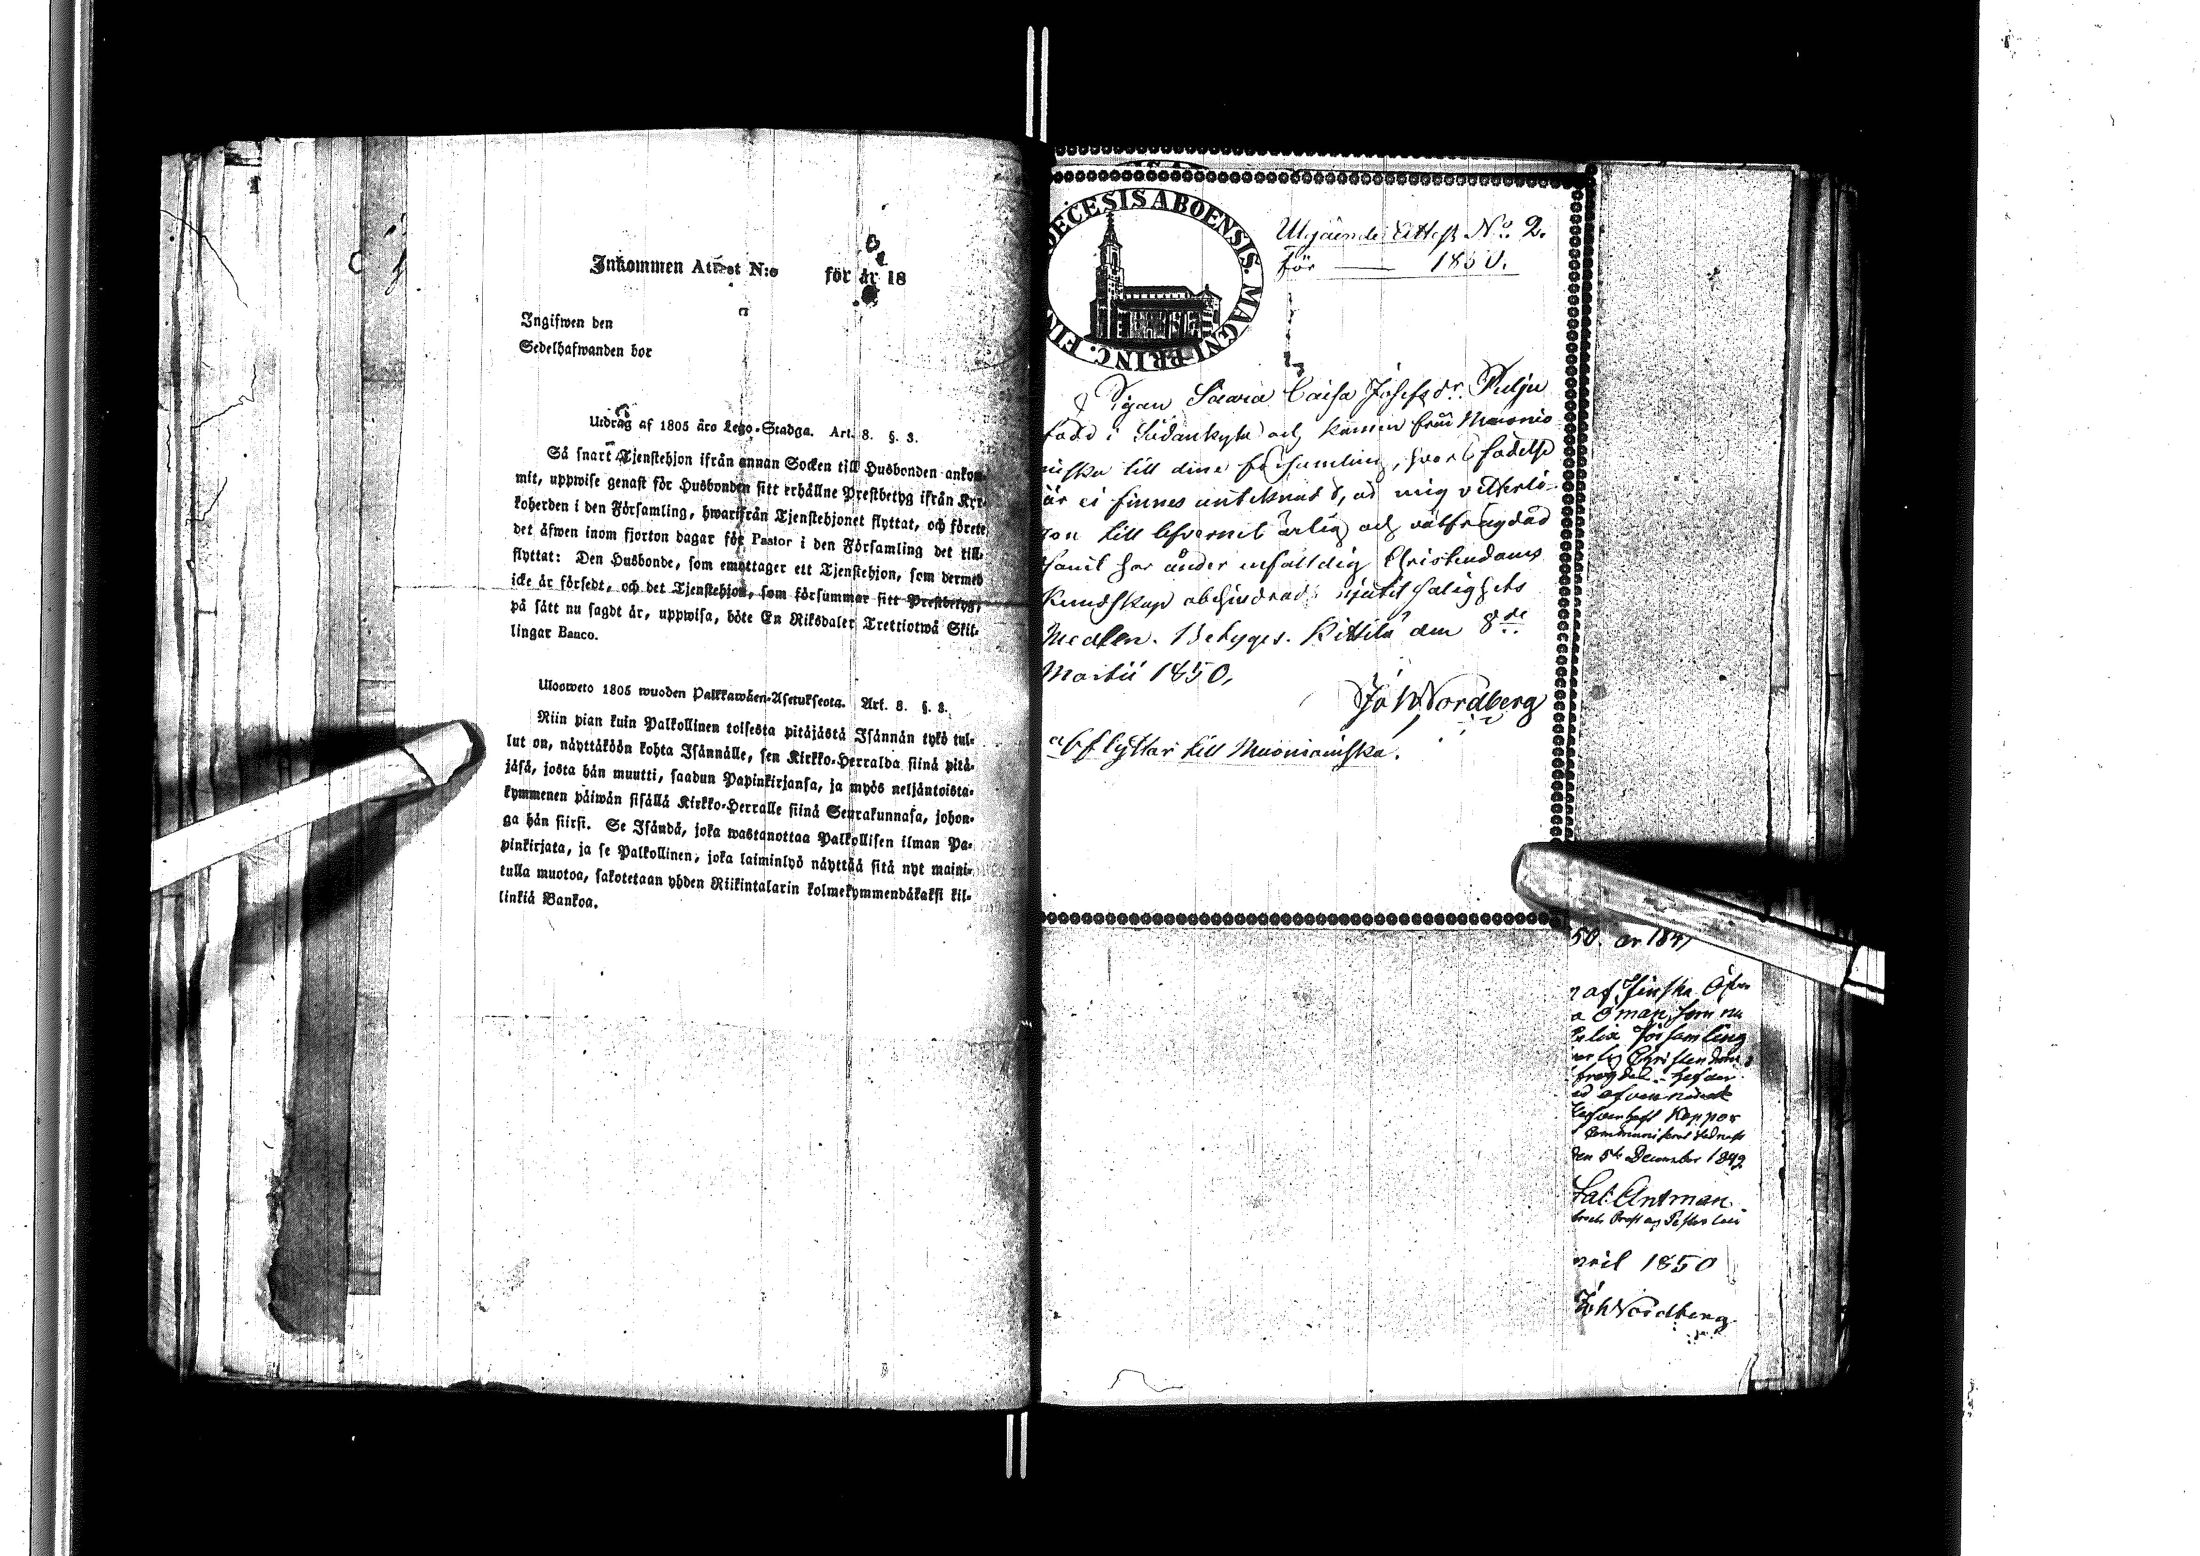 Inkommen Attest N:o för år 18
Ingifwen den
Sedelhafwanden bor
Utdrag af 1805 års Lego-Stadga. Art. 8. §. 3.
Så snart Tjenstehjon ifrån annan Socken till Husbonden ankom-
mit, uppwise genast för Husbonden sitt erhållne Prestbetyg ifrån Kyr-
koherden i den Församling, hwarifrån Tjenstehjonet flyttat, och förete
det äfwen inom fjorton dagar för Pastor i den Församling det till-
flyttat: Den Husbonde, som emottager ett Tjenstehjon, som dermed
icke är försedt, och det Tjenstehjon, som försummar sitt Prestbetyg,
på sätt nu sagdt är, uppwisa, böte En Riksdaler Trettiotwå Skil-
lingar Banco.
Ulosweto 1805 wuoden Palkkawäen-Asetuksesta. Art. 8. §. 3.
Niin pian kuin Palkollinen toisesta pitäjästä Isännän tykö tul-
lut on, näyttäköön kohta Isännälle, sen Kirkko-Herralda siinä pitä-
jäsä, josta hän muutti, saadun Papinkirjansa, ja myös neljäntoista-
kymmenen päiwän sisällä Kirkko-Herralle siinä Seurakunnasa, johon-
ga hän siirsi. Se Isändä, joka wastanottaa Palkollisen ilman Pa-
pinkirjata, ja se Palkollinen, joka laiminlyö näyttää sitä nyt maini-
tulla muotoa, sakotetaan yhden Riikintalarin kolmekymmendäkaksi kil-
linkiä Bankoa.
DECESIS ABOENSIS. MAGNI PRINC. FIN
Utgående Attest No. 2.
för 1850.
Pigan Saara Caisa Josefsdr. Pulju
född i Sodankylä och kommen från Muonio
niska till dine församling, hvars födelse
är ei finnes anteknad, är mig vetterli-
gen till lefvernet ärlig och välfrägdad
samt har under enfaldig Christendoms
Kundskap obehindrad njutit salighets
Medlen. Betyges. Kittilä den 8de
Martii 1850.
Joh Nordberg
afflyttar till Muonioniska.
50. är 1847
a Öman, som nu
Församling
Christendoms
Koppor
den 5te December 1849
Antman
pril 1850
Joh Nordberg